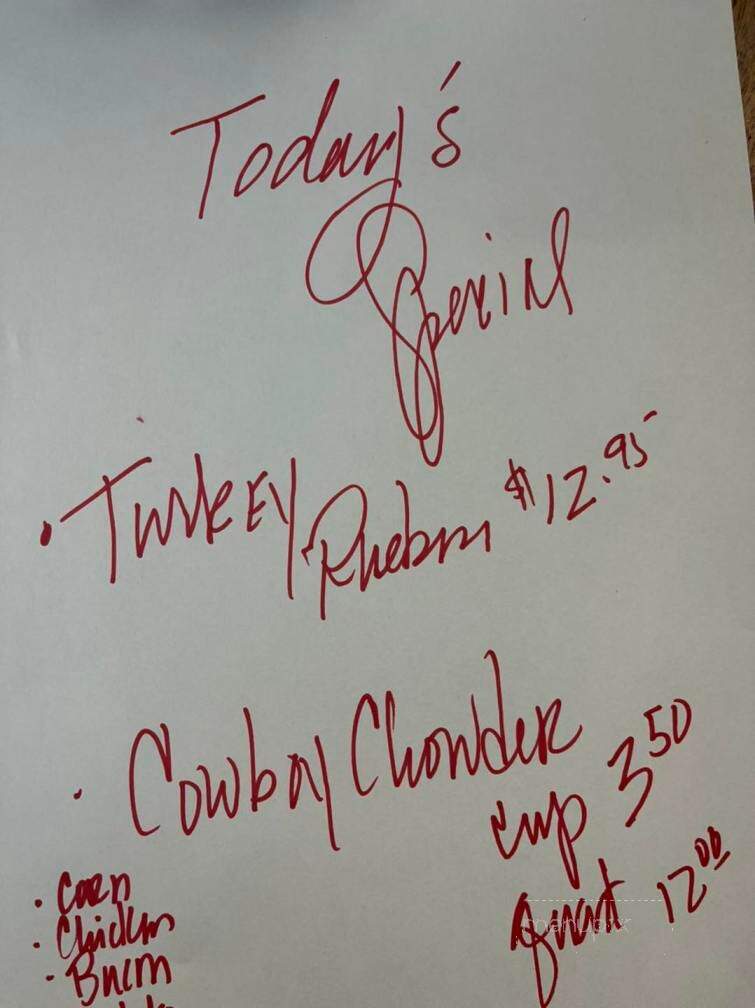 Today's
Special
• Turkey Rueben $12.95
• Cowboy Chowder
cup 3.50
Quart 12.00
• Corn
• Chicken
• Bacon